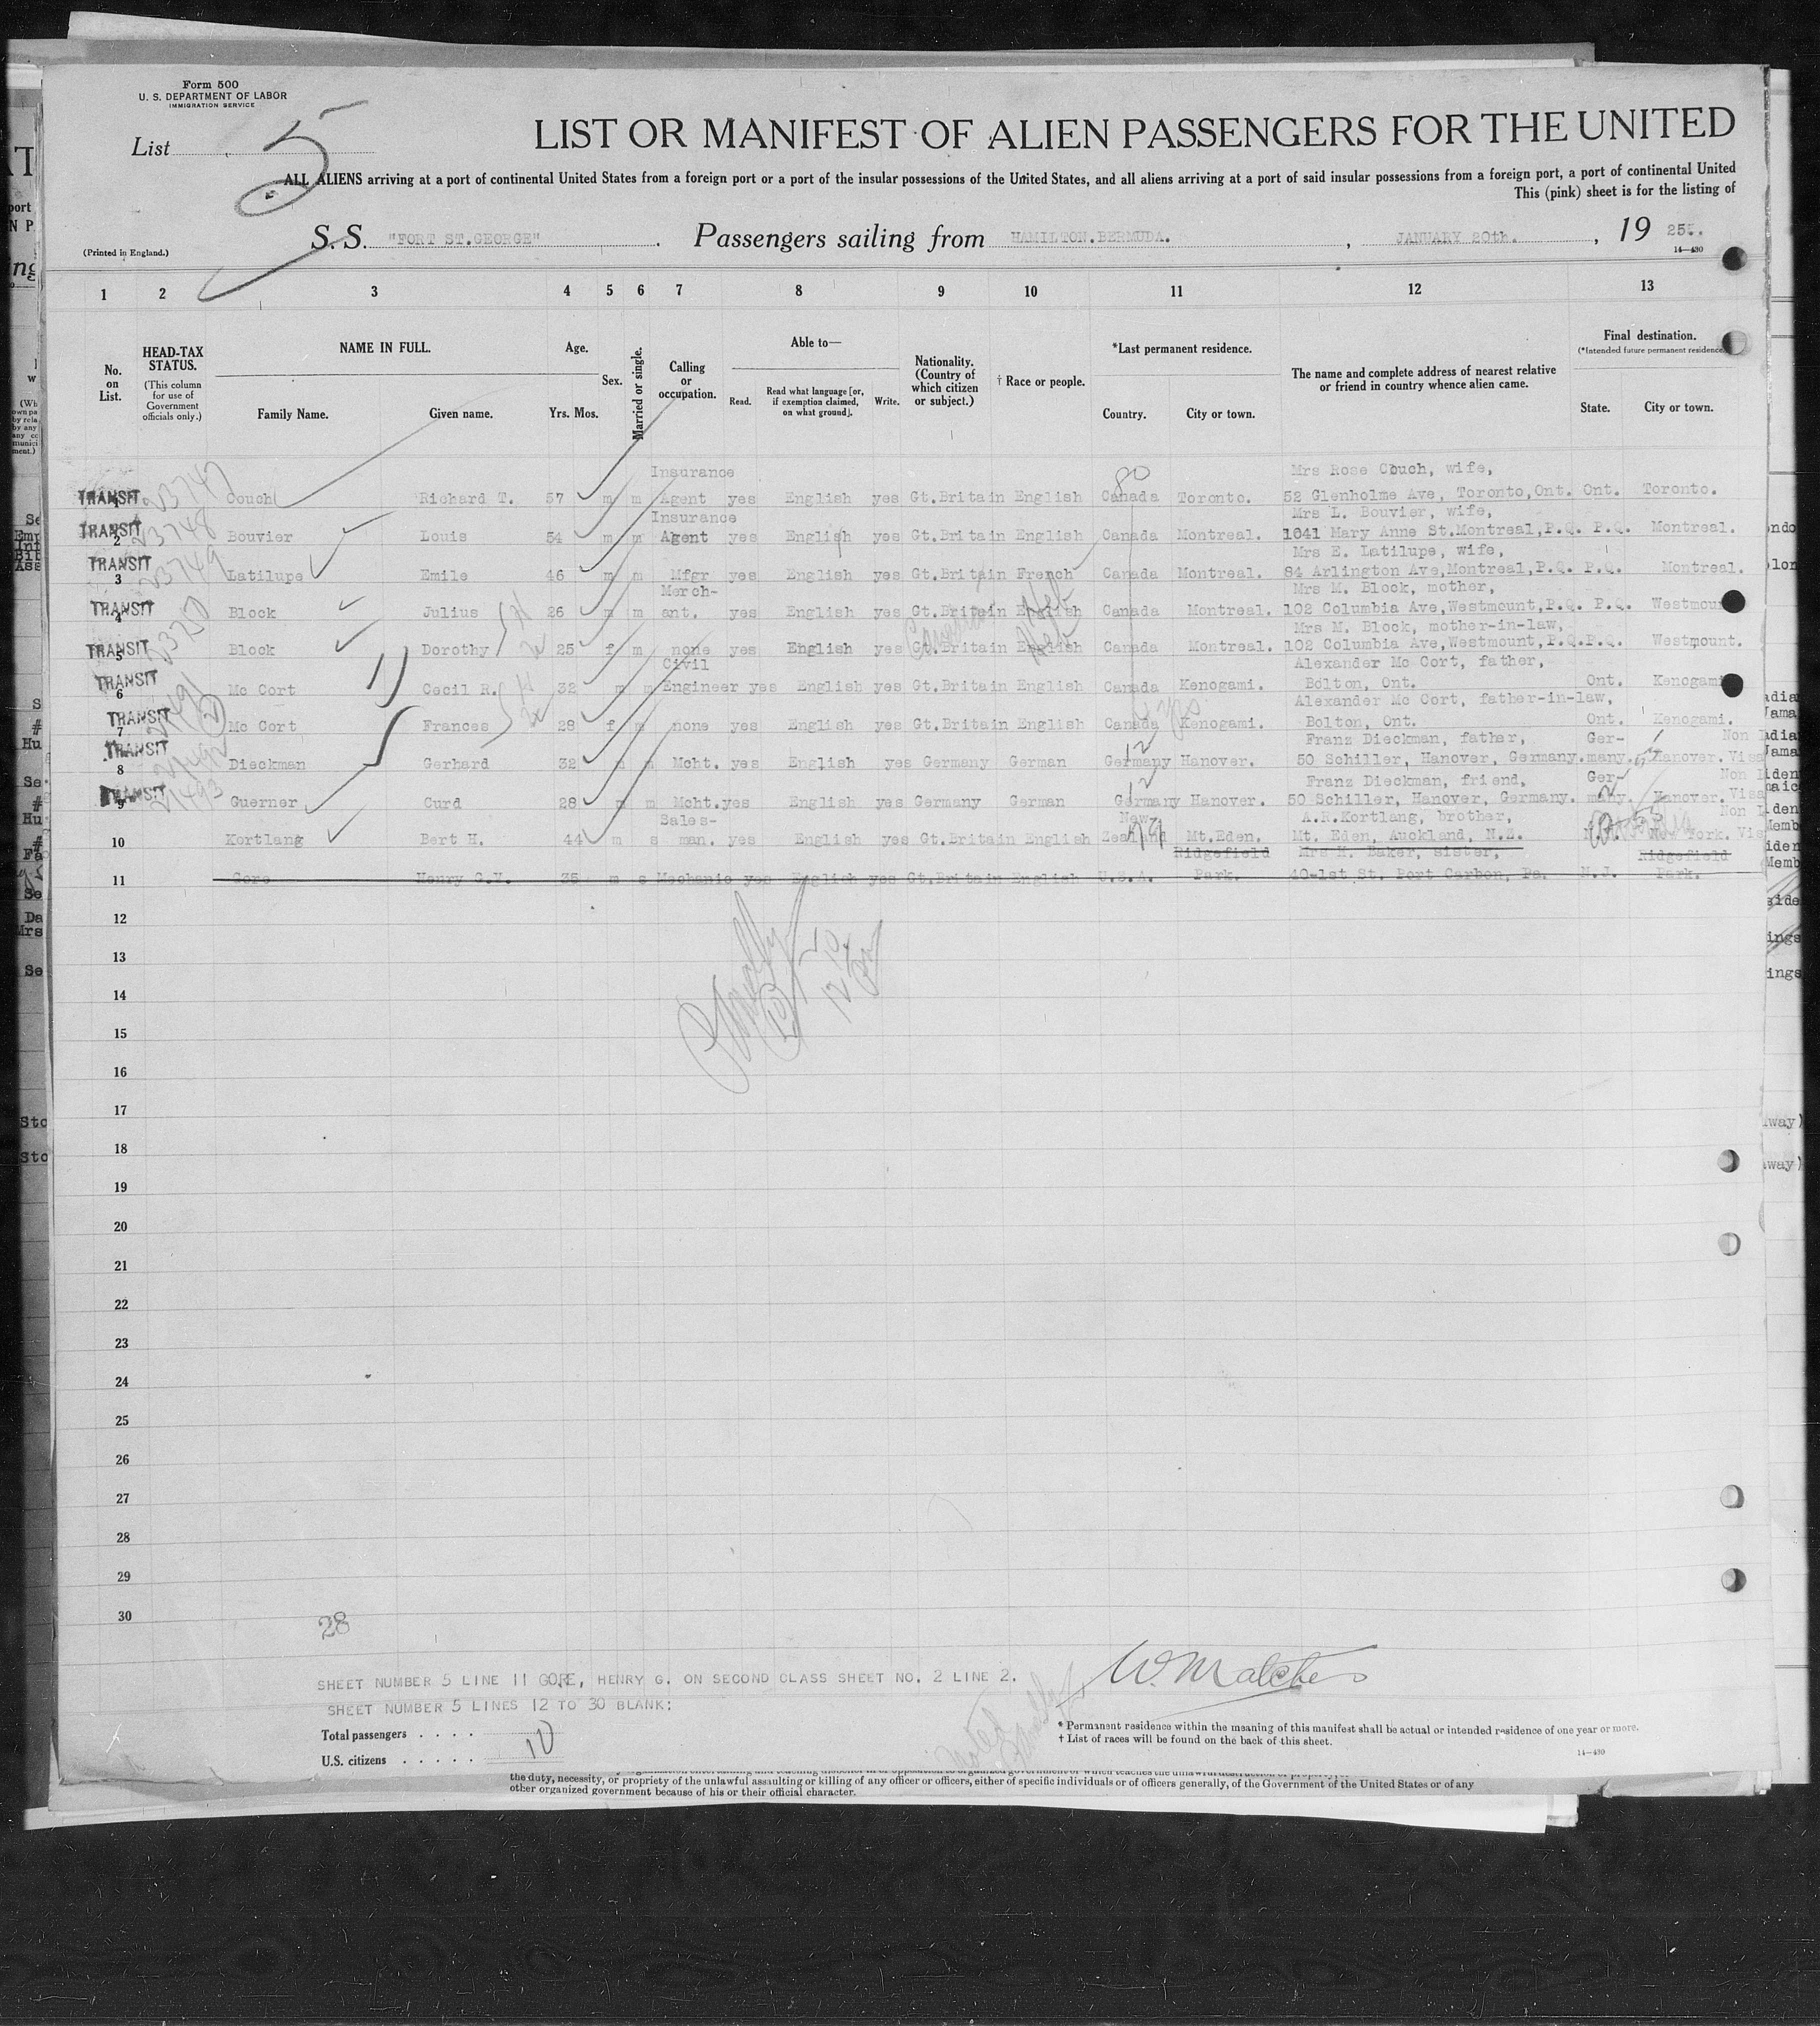 Form 500
U. S. DEPARTMENT OF LABOR
IMMIGRATION SERVICE
List 5
LIST OR MANIFEST OF ALIEN PASSENGERS FOR THE UNITED
ALL ALIENS arriving at a port of continental United States from a foreign port or a port of the insular possessions of the United States, and all aliens arriving at a port of said insular possessions from a foreign port, a port of continental United
This (pink) sheet is for the listing of
(Printed in England.)
S. S. "FORT ST.GEORGE" . Passengers sailing from HAMILTON.BERMUDA. , JANUARY 20th. , 19 25.
14—430
1 2 3 4 5 6 7 8 9 10 11 12 13
No. on List.
HEAD-TAX STATUS.
(This column for use of Government officials only.)
NAME IN FULL.
Family Name. Given name.
Age.
Yrs. Mos.
Sex.
Married or single.
Calling or occupation.
Able to—
Read. Read what language [or, if exemption claimed, on what ground]. Write.
Nationality. (Country of which citizen or subject.)
† Race or people.
*Last permanent residence.
Country. City or town.
The name and complete address of nearest relative or friend in country whence alien came.
Final destination.
(*Intended future permanent residence
State. City or town.
Insurance Mrs Rose Couch, wife,
TRANSIT 1 23747 Couch Richard T. 57 m m Agent yes English yes Gt.Britain English Canada Toronto. 52 Glenholme Ave, Toronto,Ont. Ont. Toronto.
Insurance Mrs L. Bouvier, wife,
TRANSIT 2 23748 Bouvier Louis 54 m m Agent yes English yes Gt.Britain English Canada Montreal. 1041 Mary Anne St.Montreal,P.Q. P.Q. Montreal.
Mrs E. Latilupe, wife,
TRANSIT 3 23749 Latilupe Emile 46 m m Mfgr yes English yes Gt.Britain French Canada Montreal. 84 Arlington Ave,Montreal,P.Q. P.Q. Montreal.
Merch- Mrs M. Block, mother,
TRANSIT 4 Block Julius 26 m m ant. yes English yes Gt.Britain English Heb Canada Montreal. 102 Columbia Ave,Westmount,P.Q. P.Q. Westmount
TRANSIT 5 23750 Mrs M. Block, mother-in-law,
Block Dorothy 25 f m none yes English yes Gt.Britain English Heb Canada Montreal. 102 Columbia Ave,Westmount,P.Q.P.Q. Westmount.
Civil Alexander Mc Cort, father,
TRANSIT 6 Mc Cort Cecil R. 32 m m Engineer yes English yes Gt.Britain English Canada Kenogami. Bolton, Ont. Ont. Kenogami
Alexander Mc Cort, father-in-law,
TRANSIT 7 21491 Mc Cort Frances 28 f m none yes English yes Gt.Britain English Canada Kenogami. Bolton, Ont. Ont. Kenogami.
Franz Dieckman, father, Ger- Non
TRANSIT 8 21492 Dieckman Gerhard 32 m m Mcht. yes English yes Germany German Germany Hanover. 50 Schiller, Hanover, Germany. many. Hanover. Visa
Franz Dieckman, friend, Ger- Non
TRANSIT 9 21493 Guerner Curd 28 m m Mcht.yes English yes Germany German Germany Hanover. 50 Schiller, Hanover, Germany. many. Hanover. Visa
Sales- New A.R.Kortlang, brother, Non
10 Kortlang Bert H. 44 m s man. yes English yes Gt.Britain English Zealand Mt.Eden. Mt. Eden, Auckland, N.Z. New York. Vis
Ridgefield Mrs M. Baker, sister, Ridgefield
11 Gore Henry G.H. 35 m s Mechanic yes English yes Gt.Britain English U.S.A. Park. 40-1st St. Port Carbon, Pa. N.J. Park.
12
13
14
15
16
17
18
19
20
21
22
23
24
25
26
27
28
29
30
28
SHEET NUMBER 5 LINE 11 GORE, HENRY G. ON SECOND CLASS SHEET NO. 2 LINE 2.
SHEET NUMBER 5 LINES 12 TO 30 BLANK:
Total passengers . . . .
U.S. citizens . . . . . 10
* Permanent residence within the meaning of this manifest shall be actual or intended residence of one year or more.
† List of races will be found on the back of this sheet.
14—430
the duty, necessity, or propriety of the unlawful assaulting or killing of any officer or officers, either of specific individuals or of officers generally, of the Government of the United States or of any
other organized government because of his or their official character.